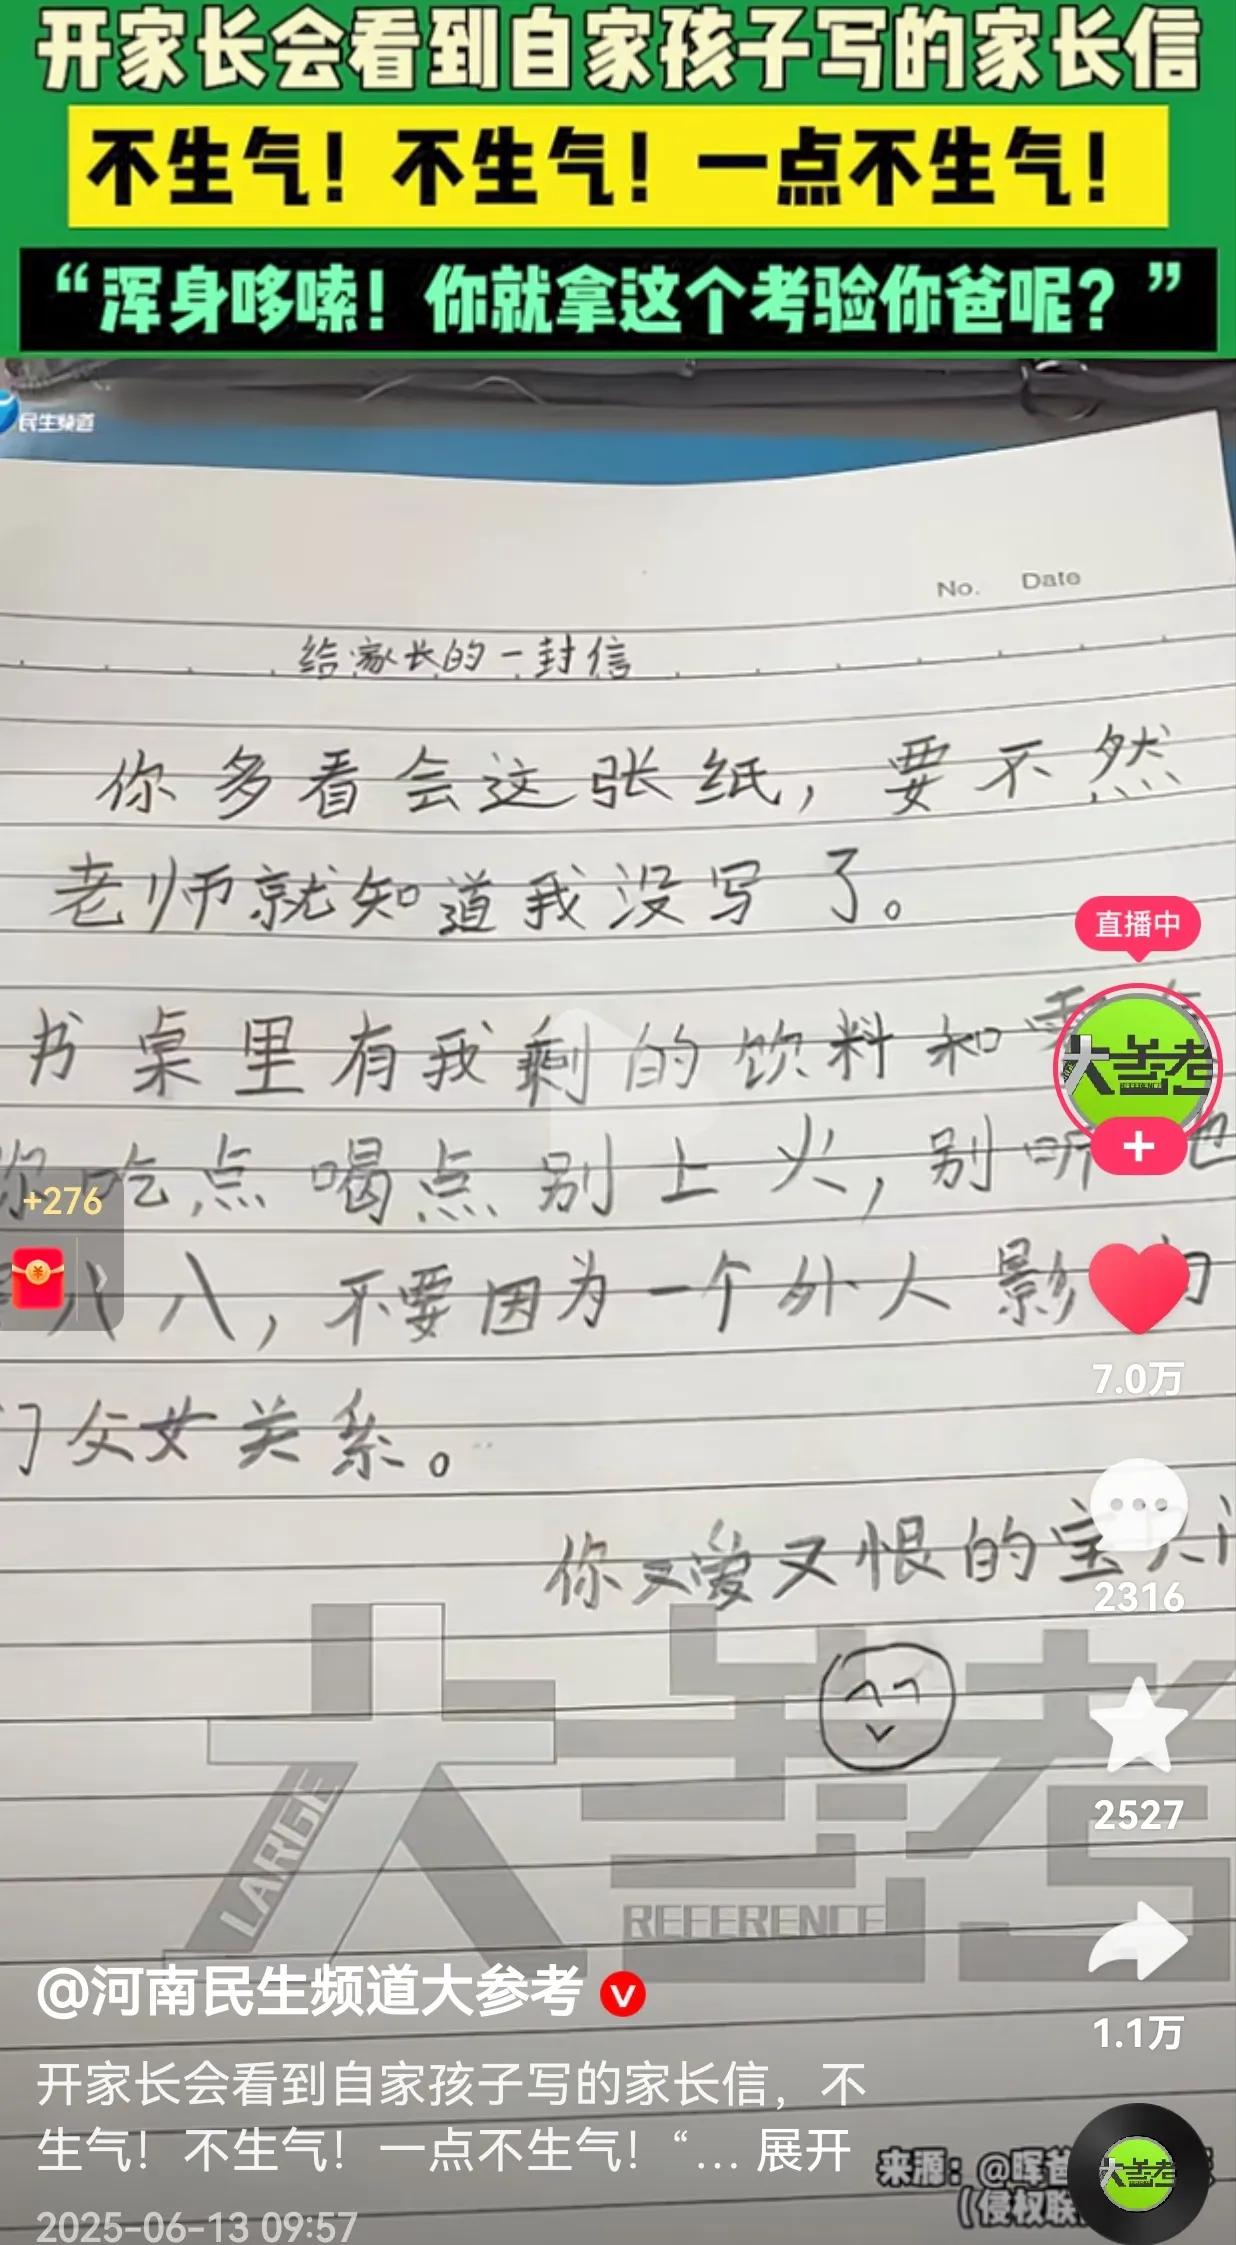 开家长会看到自家孩子写的家长信
不生气！不生气！一点不生气！
“浑身哆嗦！你就拿这个考验你爸呢？”
民生频道
No. Date
给家长的一封信
你多看会这张纸，要不然
老师就知道我没写了。
书桌里有我剩的饮料和零
你吃点喝点别上火，别听他
八八，不要因为一个外人影响
们父女关系。
你又爱又恨的宝贝
直播中
大参考
REFERENCE
+276
7.0万
2316
2527
1.1万
大参考
LARGE
REFERENCE
@河南民生频道大参考
开家长会看到自家孩子写的家长信，不
生气！不生气！一点不生气！“... 展开
2025-06-13 09:57
来源：@晖爸
（侵权联
大参考